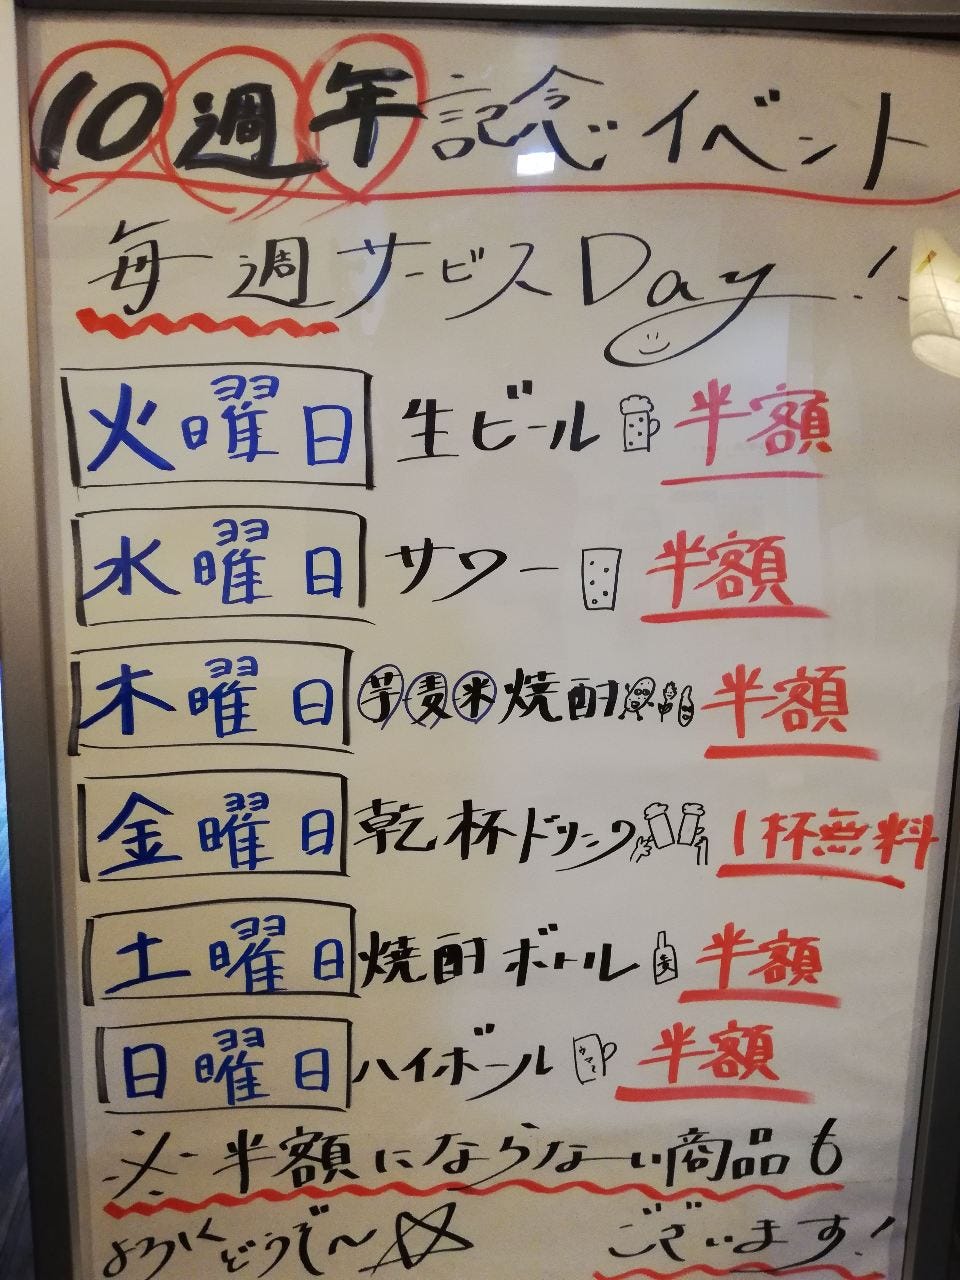 10週年記念イベント
毎週サービスDay!!
火曜日 生ビール 半額
水曜日 サワー 半額
木曜日 芋麦米焼酎 半額
金曜日 乾杯ドリンク 1杯無料
土曜日 焼酎ボトル 半額
日曜日 ハイボール 半額
※半額にならない商品も
ございます!
よろしくどうぞ〜